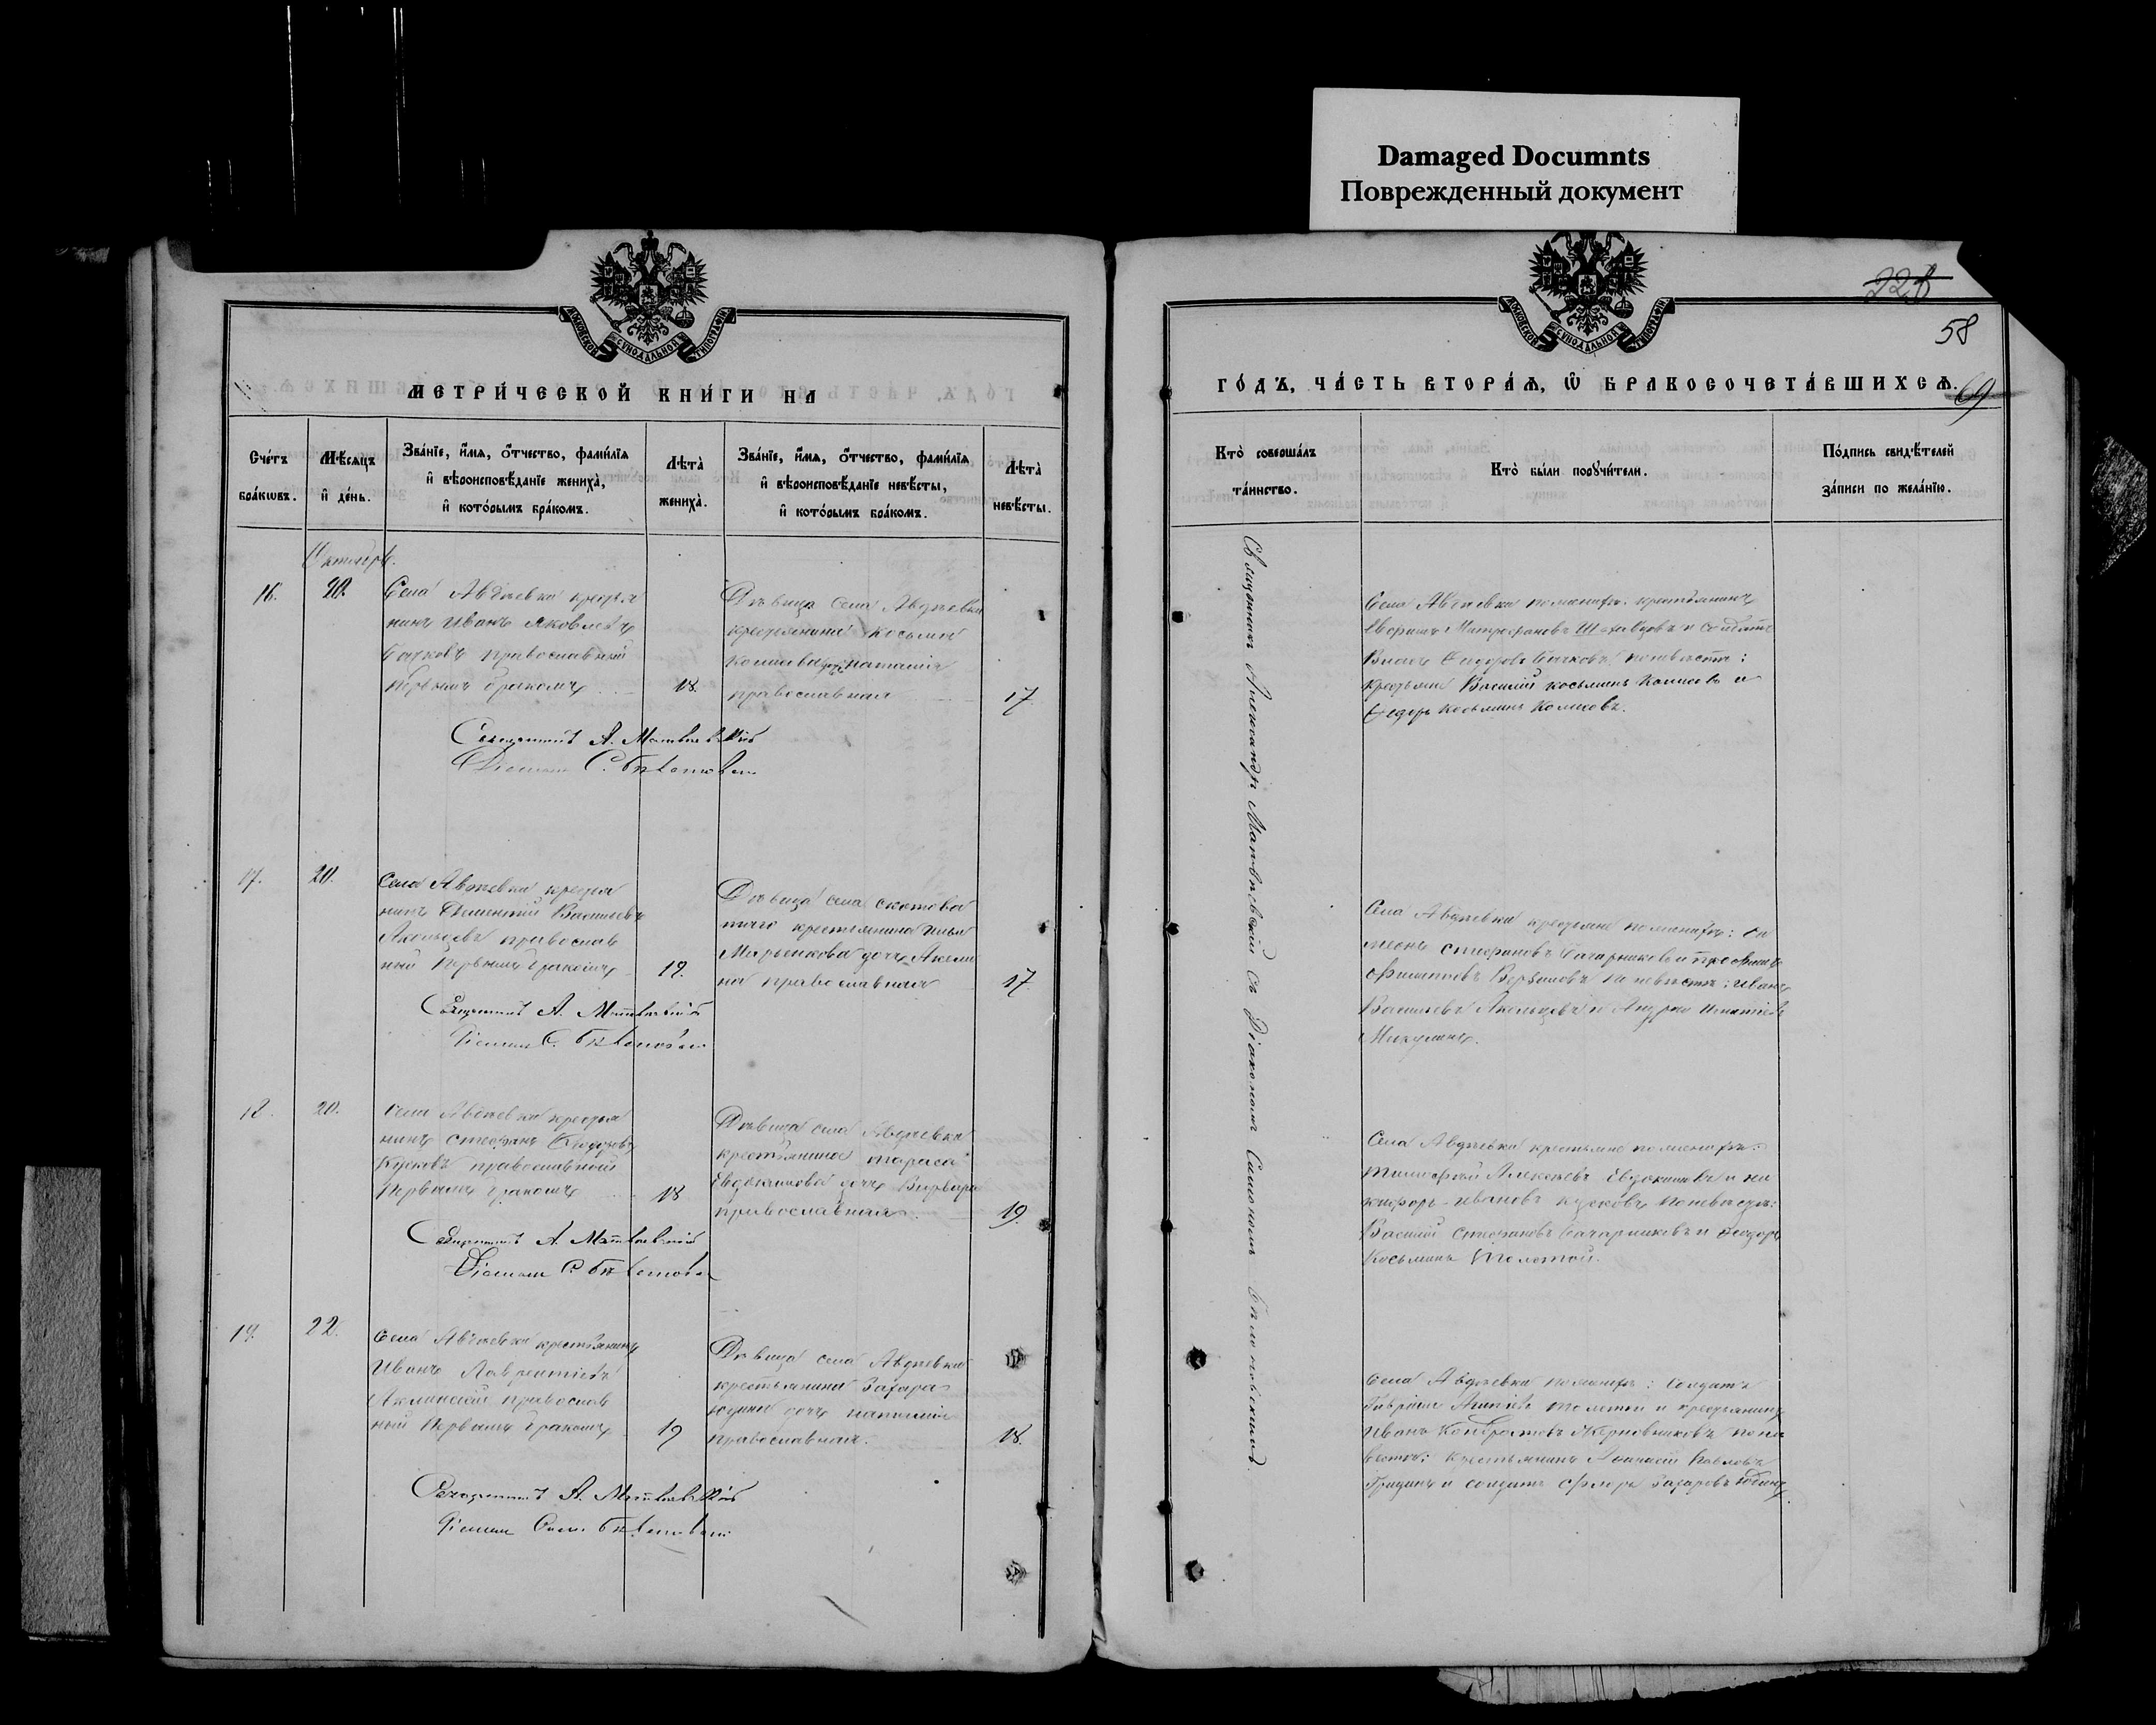 Damaged Documnts
Поврежденный документ
МОСКОВСКОЙ СУНОДАЛЬНОЙ ТИПОГРАФІИ
МЕТРИ́ЧЕСКОЙ КНИ́ГИ НА
Сче́тъ бра́кѡвъ.
Мѣ́сяцъ и҆ де́нь.
Зва́нїе, и҆́мя, ѻ҆́тчество, фами́лїя
и҆ вѣроисповѣ́данїе жениха̀,
и҆ кото́рымъ бра́комъ.
Лѣта̀ жениха̀.
Зва́нїе, и҆́мя, ѻ҆́тчество, фами́лїя
и҆ вѣроисповѣ́данїе невѣ́сты,
и҆ кото́рымъ бра́комъ.
Лѣта̀ невѣ́сты.
Октябрь.
16.
20.
Села Авдѣевки крестья
нинъ Иванъ Яковлевъ
православный
первымъ бракомъ
18.
Дѣвица села Авдѣевки
крестьянина Косьмы
дочь Наталія
православная
17
Священникъ А. Матвѣевскій
Діаконъ С.
17.
20.
Села Авдѣевки крестья
нинъ Дементій Васильевъ
Акользевъ православ
ный первымъ бракомъ
19.
Дѣвица села Скотова
таго крестьянина Ильи
Марьенкова дочь Акили
на православная
17
Священникъ А. Матвѣевскій
Діаконъ С.
18.
20.
Села Авдѣевки крестья
нинъ Стефанъ Феодоровъ
Кусковъ православный
первымъ бракомъ
18
Дѣвица села Авдѣевки
крестьянина Тараса
Евдокимова дочь Варвара
православная.
19.
Священникъ А. Матвѣевскій
Діаконъ С.
19.
22.
Села Авдѣевки крестьянинъ
Иванъ Лаврентіевъ
православ
ный первымъ бракомъ
19
Дѣвица села Авдѣевки
крестьянина Захара
Юдина дочь Наталія
православная.
18.
Священникъ А. Матвѣевскій
Діаконъ
МОСКОВСКОЙ СУНОДАЛЬНОЙ ТИПОГРАФІИ
228
58
ГО́ДЪ, ЧА́СТЬ ВТОРА́Я, Ѡ҆ БРАКОСОЧЕТА́ВШИХСЯ.
69
Кто̀ соверша́лъ та́инство.
Кто̀ бы́ли порꙋчи́тели.
По́дпись свидѣ́телей
за́писи по жела́нїю.
Священникъ Александръ Матвѣевскій съ Діакономъ Симеономъ
Села Авдѣевки по женихѣ: крестьянинъ
Митрофановъ и солдатъ
Власъ Федоровъ по невѣстѣ:
крестьяне Василій Косьминъ и
Федоръ Косьминъ
Села Авдѣевки крестьяне по женихѣ: Си
меонъ Стефановъ Сахарниковъ и Трофимъ
Филиповъ по невѣстѣ: Иванъ
Васильевъ Акользевъ и Андрей Игнатіевъ
Микулинъ.
Села Авдѣевки крестьяне по женихѣ:
Тимофей Алексѣевъ Евдокимовъ и Ни
кифоръ Ивановъ Кусковъ по невѣстѣ:
Василій Стефановъ Сахарниковъ и Феодоръ
Косьминъ Толстой.
Села Авдѣевки по женихѣ: солдатъ
Гавріилъ Толстой и крестьянинъ
Иванъ Кондратовъ Жерновниковъ по не
вѣстѣ: крестьянинъ Павловъ
Гридинъ и солдатъ Флоръ Захаровъ Юдинъ